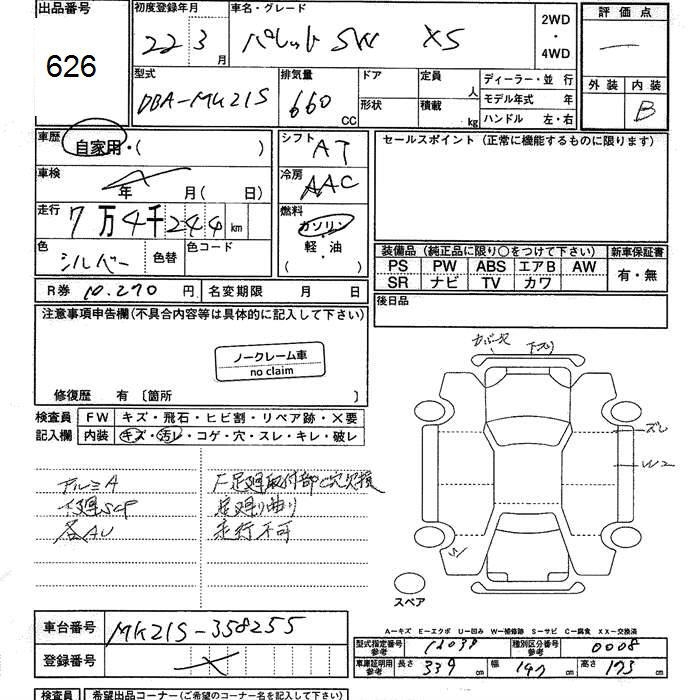 出品番号
626
初度登録年月
22 3 月
車名・グレード
パレット SW XS
2WD
・
4WD
評価点
外装 内装
B
型式
DBA-MK21S
排気量
660 CC
ドア
形状
定員 人
積載 kg
ディーラー・並行
モデル年式 年
ハンドル 左・右
車歴
自家用・( )
車検
年 月(日)
走行
7万4千244 km
色
シルバー
色替
色コード
シフト
AT
冷房
AAC
燃料
ガソリン
軽・油
セールスポイント (正常に機能するものに限ります)
装備品 (純正品に限り○をつけて下さい) 新車保証書
PS PW ABS エアB AW 有・無
SR ナビ TV カワ
後日品
R券 10.270 円
名変期限 月 日
注意事項申告欄(不具合内容等は具体的に記入して下さい)
ノークレーム車
no claim
修復歴 有 〔箇所
検査員 FW キズ・飛石・ヒビ割・リペア跡・X要
記入欄 内装 キズ・汚レ・コゲ・穴・スレ・キレ・破レ
アルミA
下廻SCP
各AU
F足廻取付部
足廻り曲り
走行不可
ズレ
W2
W
スペア
A-キズ E-エクボ U-凹み W-補修跡 S-サビ C-腐食 XX-交換済
車台番号 MK21S-358255
登録番号
型式指定番号 参考 12039
種別区分番号 参考 0008
車庫証明用 参考 長さ 339 cm 幅 147 cm 高さ 173 cm
検査員 希望出品コーナー(ご希望のコーナー名を記入して下さい)